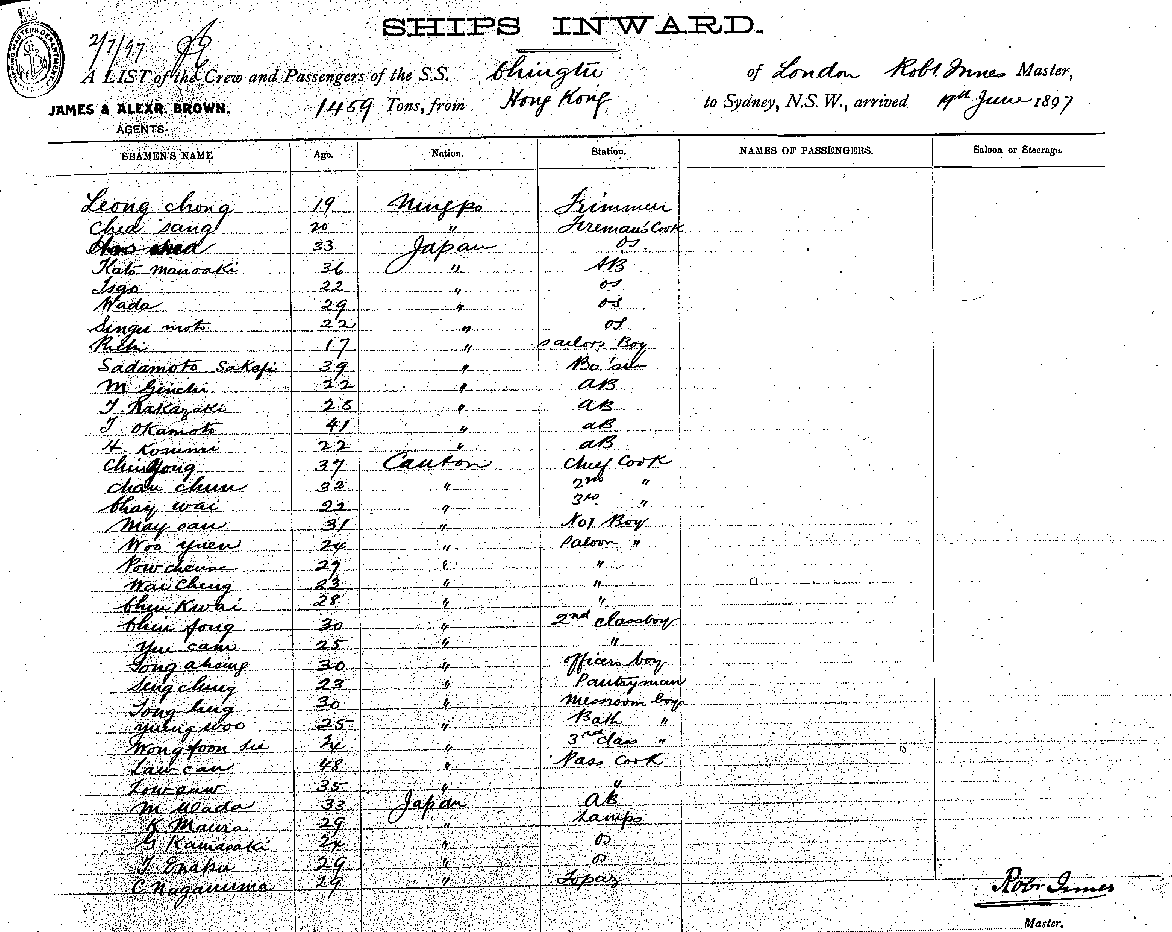 SHIPS INWARD.
2/7/97
A LIST of the Crew and Passengers of the S.S. Chingtu of London Robt Innes Master,
JAMES & ALEXR. BROWN, 1459 Tons, from Hong Kong to Sydney, N.S.W., arrived 19th June 1897
AGENTS.
SEAMEN'S NAME Age. Nation. Station. NAMES OF PASSENGERS. Saloon or Steerage.
Leong chong 19 Ningpo Trimmer
Ched sang 20 " Fireman's Cook
33 Japan OS
Kato 36 " AB
22 " OS
Wada 29 " OS
Singu moto 22 " OS
17 " Sailors Boy
Sadamoto Sakaji 39 " Bo'sn
M Genchi 22 " AB
T 25 " AB
T Okamoto 41 " AB
H 22 " AB
37 Canton Chief Cook
Chan chun 32 " 2nd "
Chay wai 22 " 3rd "
May san 31 " No 1 Boy
Woo yuen 24 " Saloon "
29 " "
Wai Cheng 23 " "
Chin Kwai 28 " "
Chin fong 30 " 2nd class boy
Yui cam 25 " "
30 " officers boy
Sing ching 23 " Pantryman
30 " messroom boy
25 " Bath "
Wong foon 24 " 3rd class "
Law can 48 " Pass Cook
35 " "
M Wada 33 Japan AB
K Maura 29 " Lamps
G Kamasaki 24 " OS
T 29 " OS
C Naganuma 29 " Topaz
Robt Innes
Master.